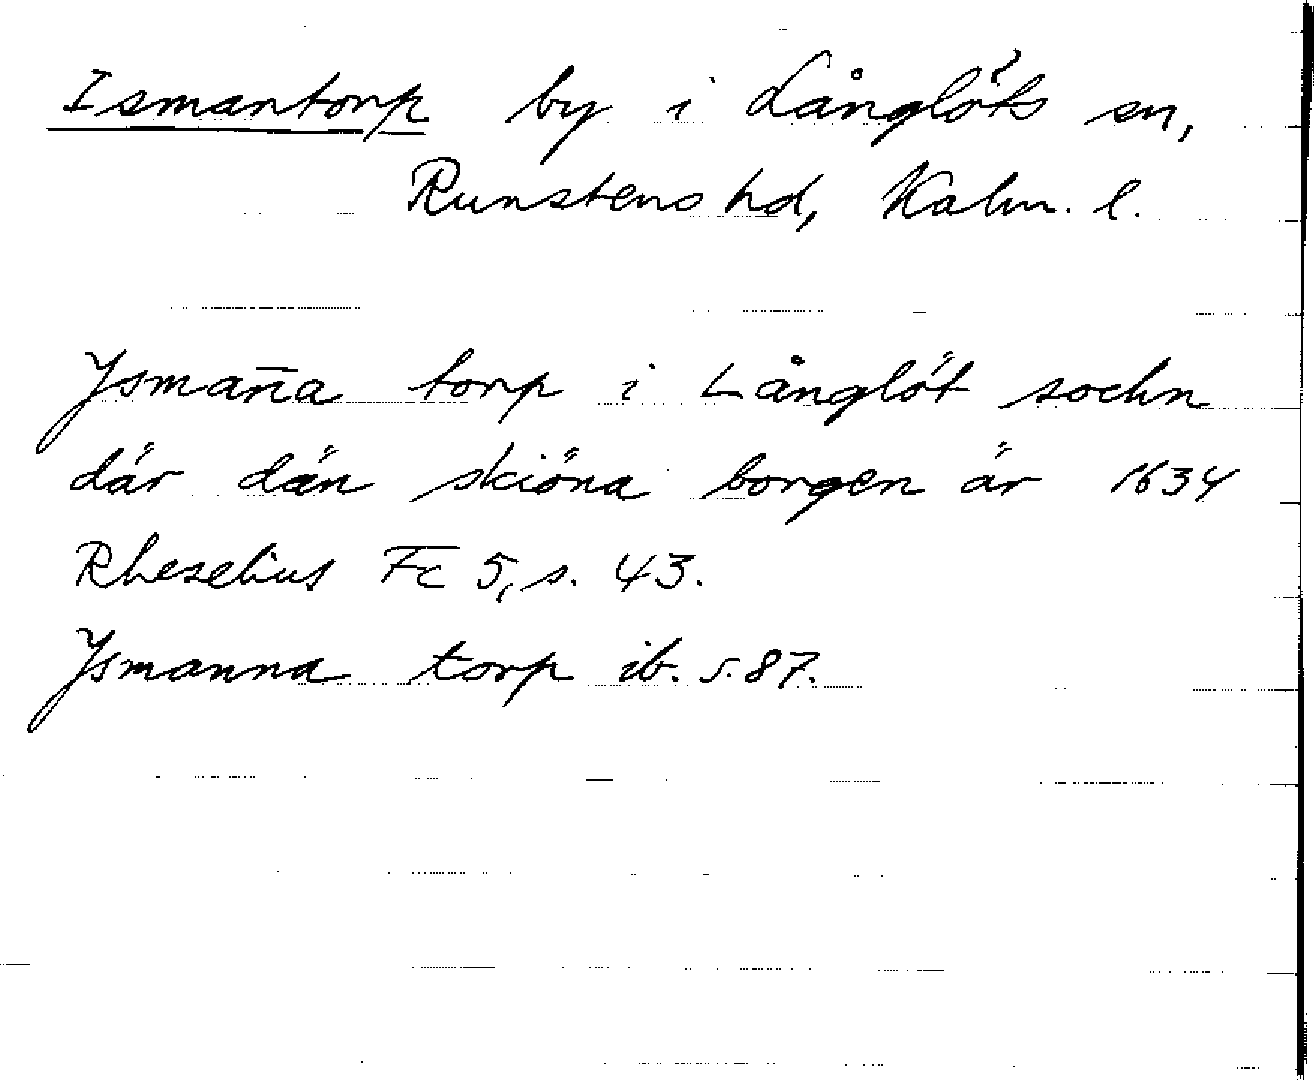 Ismantorp by i Långlöts sn,
Runstens hd, Kalm. l.
Ysman̄a torp i Långlöt sochn
där dän skiöna borgen är 1634
Rhezelius Fc 5, s. 43.
Ysmanna torp ib. s. 87.